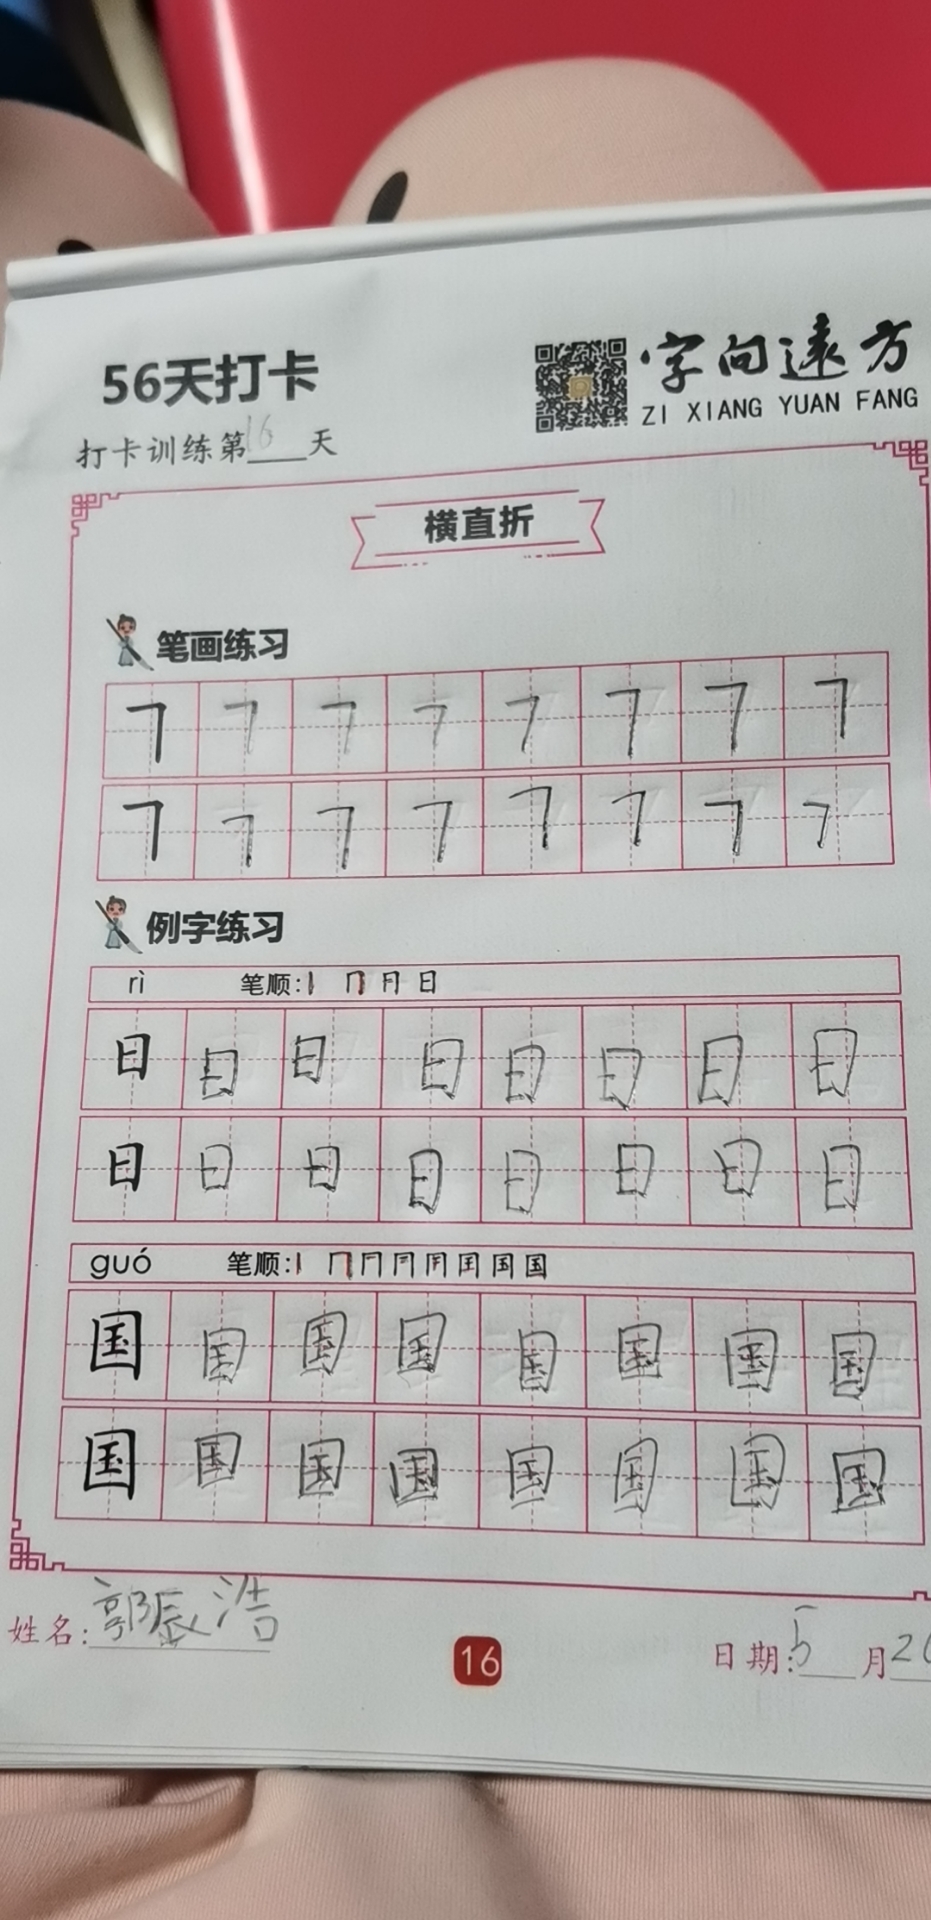 56天打卡
字向遠方
ZI XIANG YUAN FANG
打卡训练第16天
横直折
笔画练习
㇕ ㇕ ㇕ ㇕ ㇕ ㇕ ㇕ ㇕
㇕ ㇕ ㇕ ㇕ ㇕ ㇕ ㇕ ㇕
例字练习
rì 笔顺: 丨 冂 月 日
日 日 日 日 日 日 日 日
日 日 日 日 日 日 日 日
guó 笔顺: 国
国 国 国 国 国 国 国 国
国 国 国 国 国 国 国 国
姓名: 郭辰浩
16
日期: 5月20